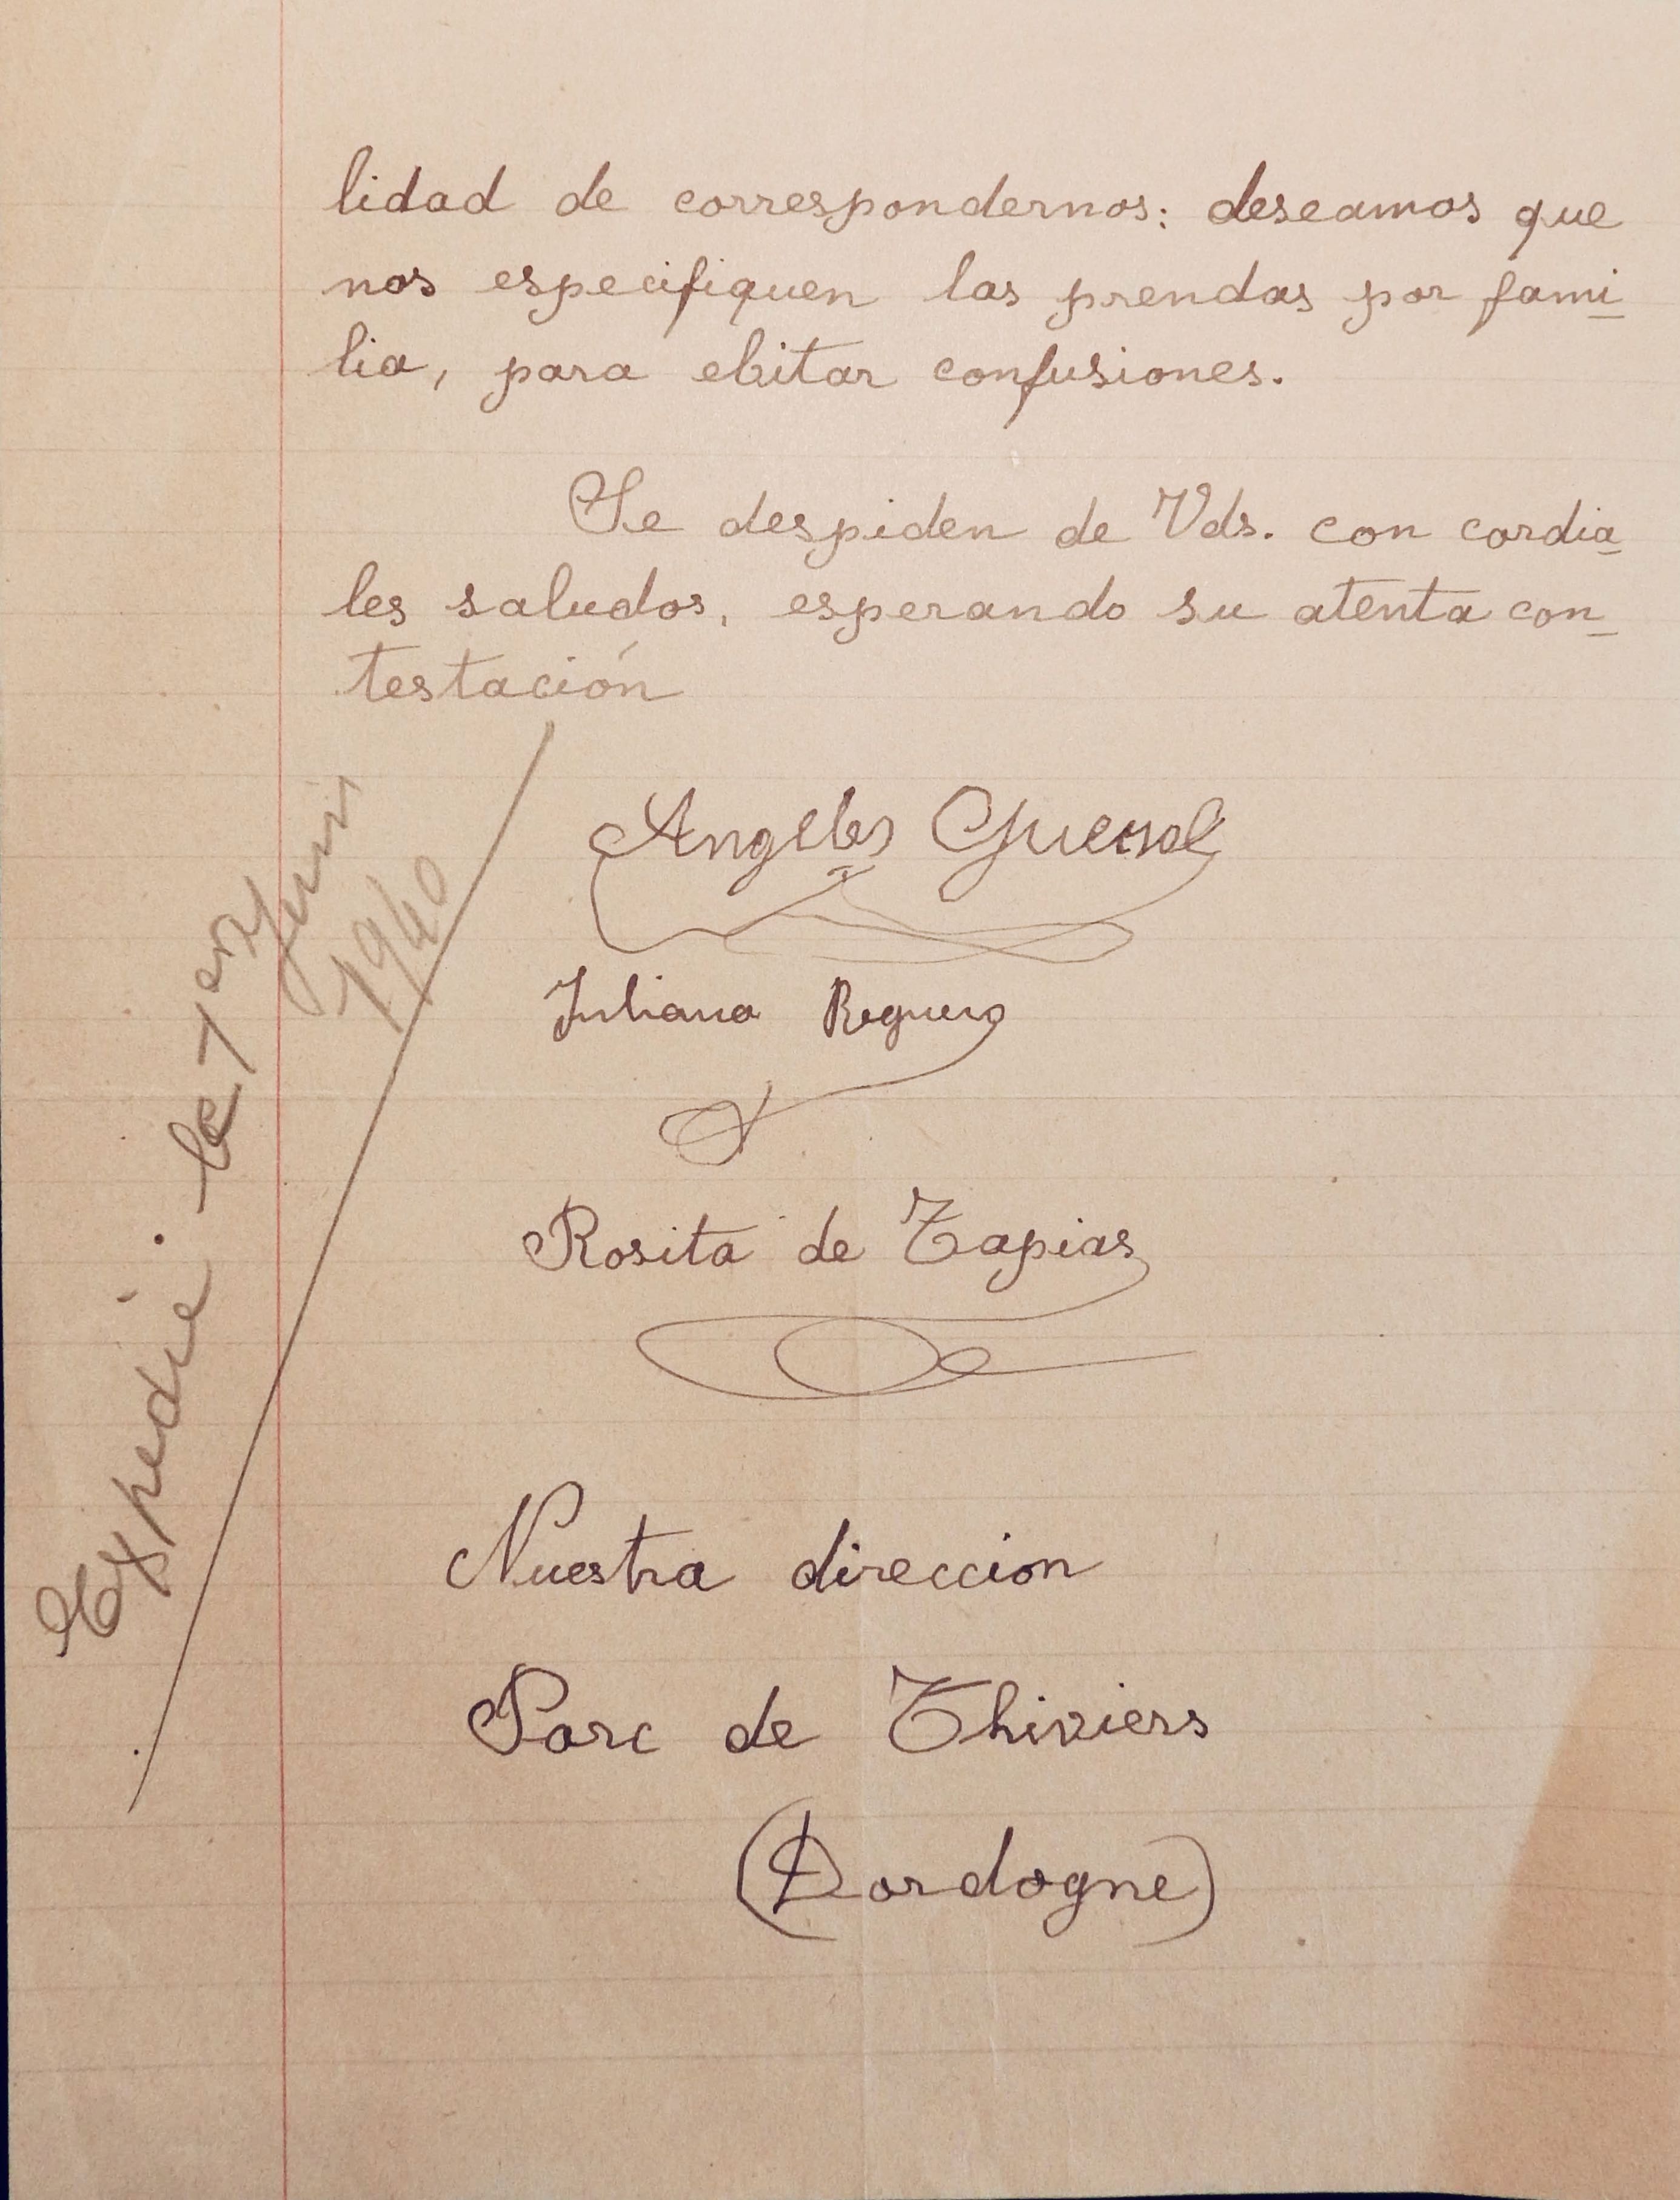 lidad de correspondernos: deseamos que
nos especifiquen las prendas por fami-
lia, para ebitar confusiones.
Se despiden de Vds. con cordia-
les saludos, esperando su atenta con-
testación
Angeles
Juliana Reguero
Rosita de Tapias
Nuestra direccion
Parc de Thiviers
(Dordogne)
Expédié le 1er Juin
1940